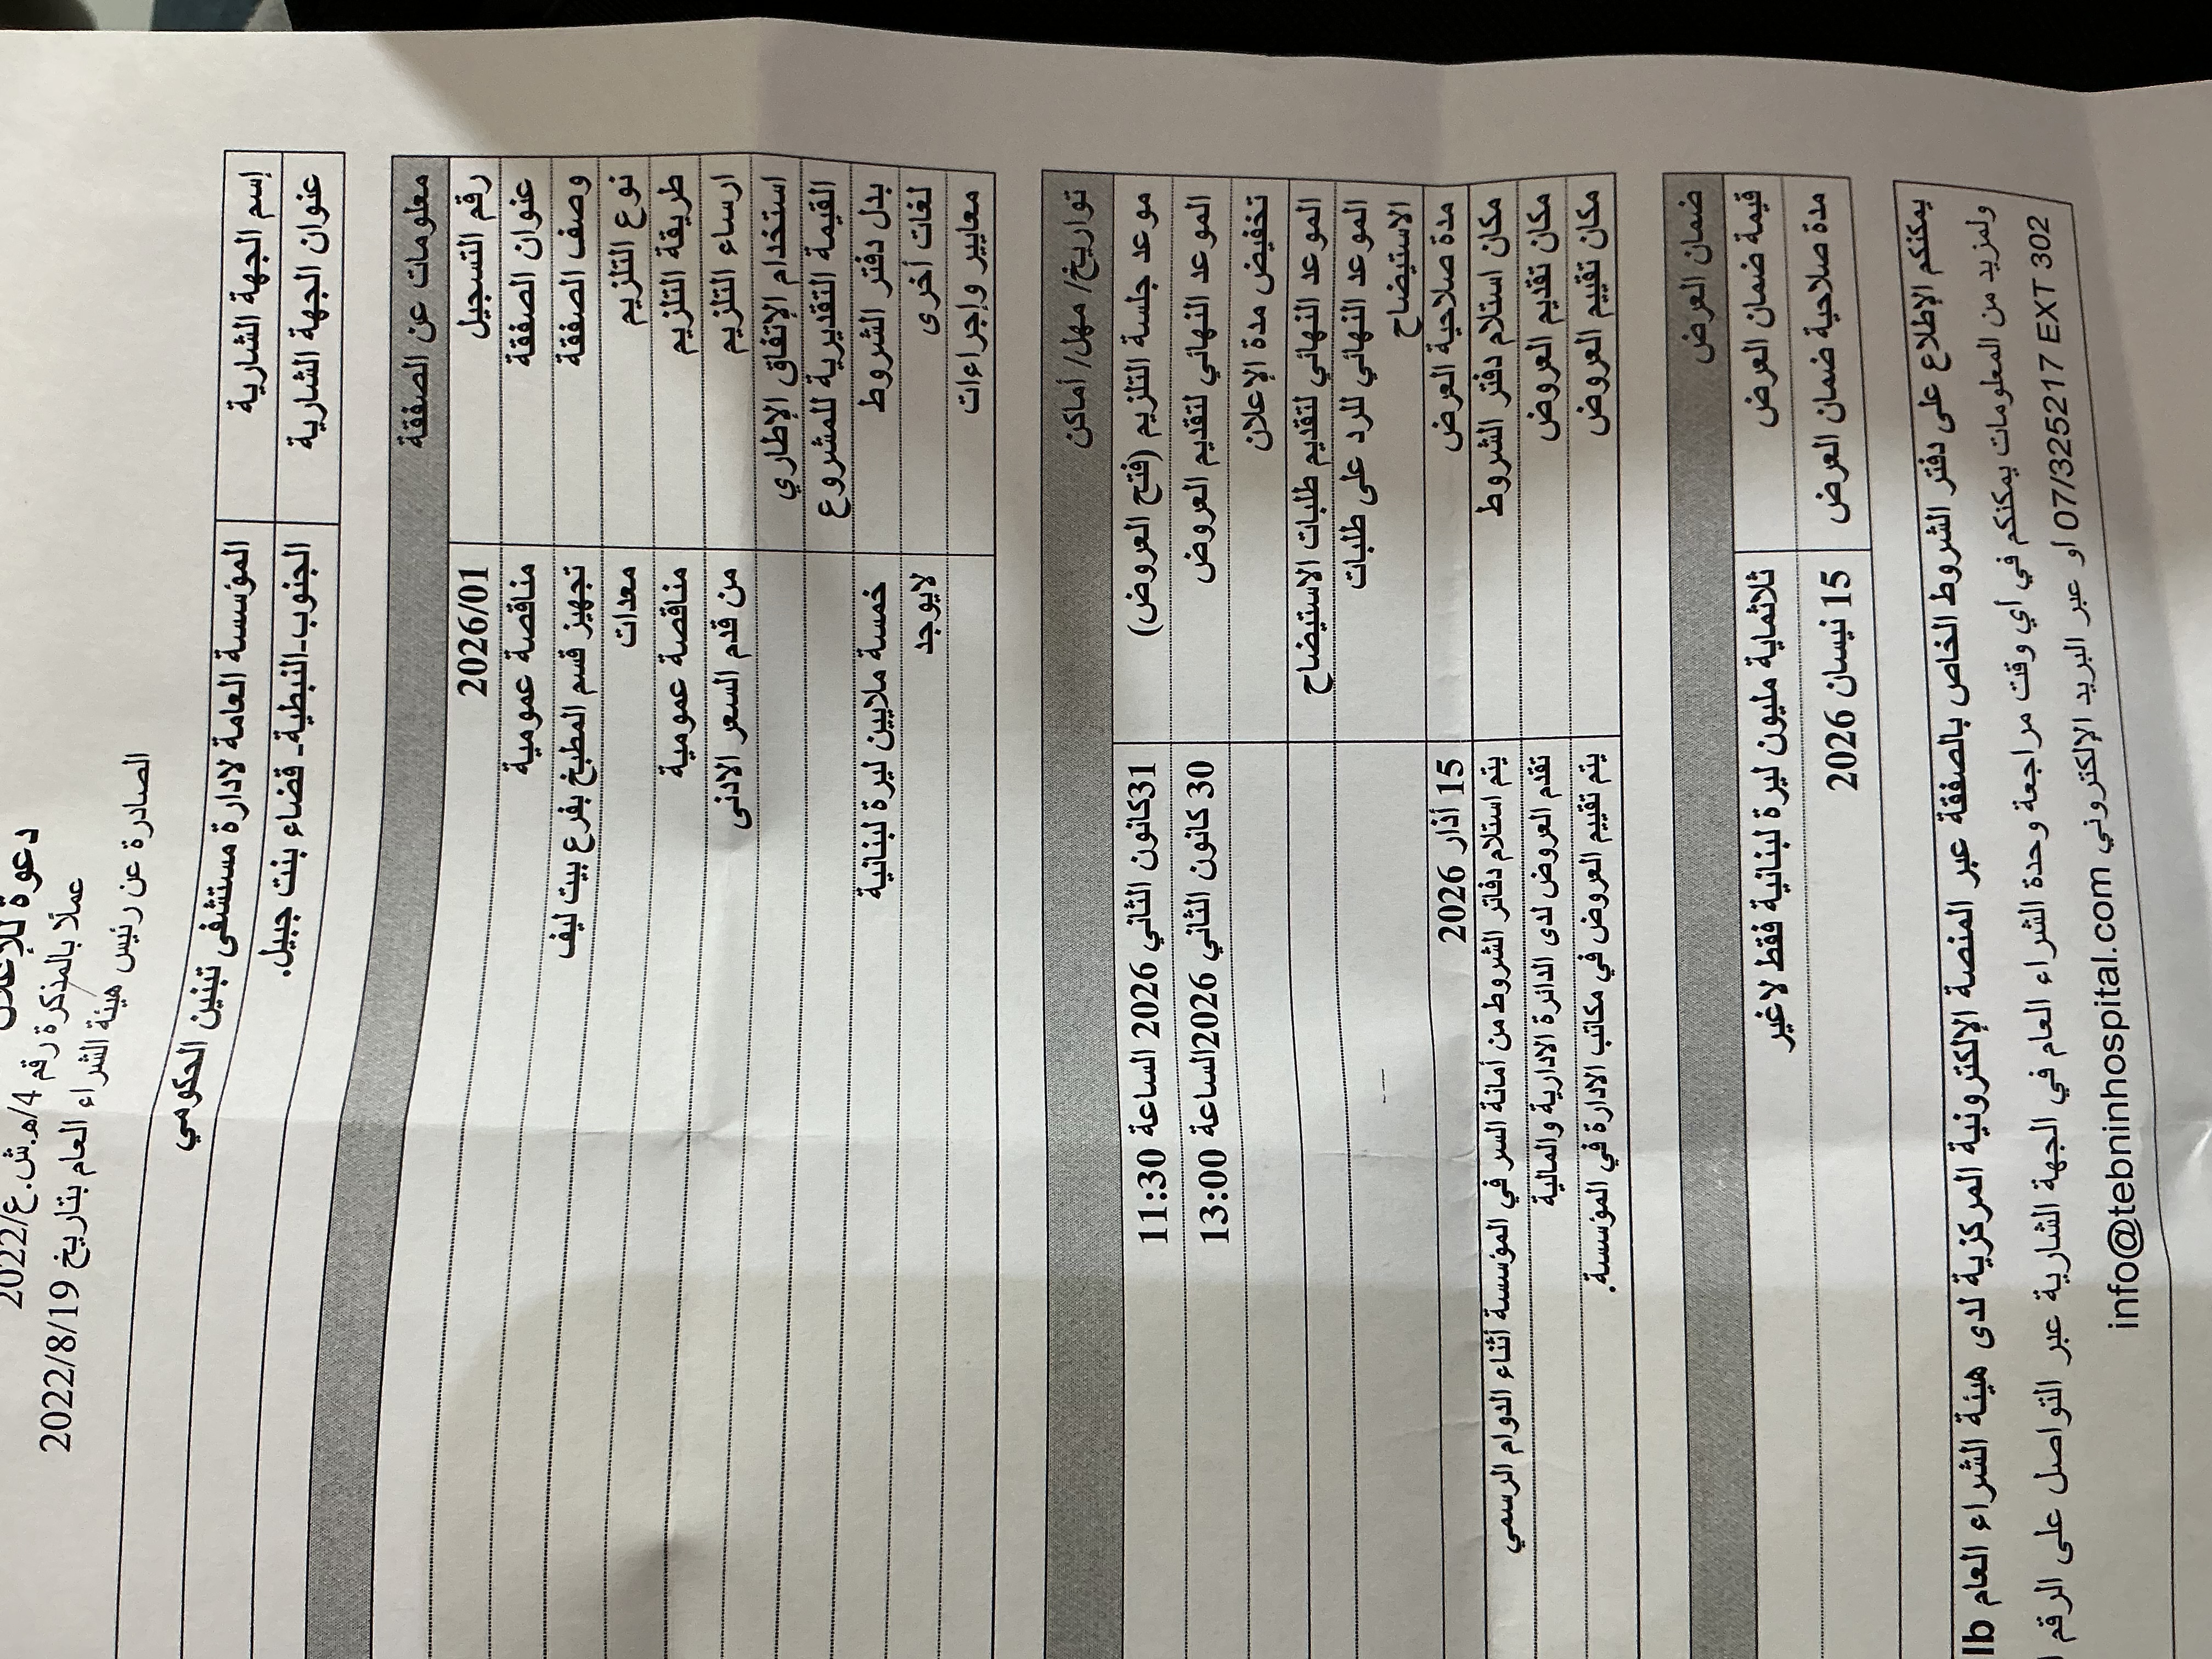 دعوة للإعلان
عملًا بالمذكرة رقم 4/هـ.ش.ع/2022
الصادرة عن رئيس هيئة الشراء العام بتاريخ 2022/8/19
إسم الجهة الشارية المؤسسة العامة لادارة مستشفى تبنين الحكومي
عنوان الجهة الشارية الجنوب-النبطية- قضاء بنت جبيل.
معلومات عن الصفقة
رقم التسجيل 2026/01
عنوان الصفقة مناقصة عمومية
وصف الصفقة تجهيز قسم المطبخ بفرع بيت ليف
نوع التلزيم معدات
طريقة التلزيم مناقصة عمومية
ارساء التلزيم من قدم السعر الادنى
استخدام الإتفاق الإطاري
القيمة التقديرية للمشروع
بدل دفتر الشروط خمسة ملايين ليرة لبنانية
لغات أخرى لايوجد
معايير وإجراءات
تواريخ/ مهل/ أماكن
موعد جلسة التلزيم (فتح العروض) 31كانون الثاني 2026 الساعة 11:30
الموعد النهائي لتقديم العروض 30 كانون الثاني 2026الساعة 13:00
تخفيض مدة الإعلان
الموعد النهائي لتقديم طلبات الاستيضاح
الموعد النهائي للرد على طلبات
الاستيضاح
مدة صلاحية العرض 15 أذار 2026
مكان استلام دفتر الشروط يتم استلام دفاتر الشروط من أمانة السر في المؤسسة أثناء الدوام الرسمي
مكان تقديم العروض تقدم العروض لدى الدائرة الادارية والمالية
مكان تقييم العروض يتم تقييم العروض في مكاتب الادارة في المؤسسة.
ضمان العرض
قيمة ضمان العرض ثلاثماية مليون ليرة لبنانية فقط لاغير
مدة صلاحية ضمان العرض 15 نيسان 2026
يمكنكم الإطلاع على دفتر الشروط الخاص بالصفقة عبر المنصة الإلكترونية المركزية لدى هيئة الشراء العام lb
ولمزيد من المعلومات يمكنكم في اي وقت مراجعة وحدة الشراء العام في الجهة الشارية عبر التواصل على الرقم
07/325217 EXT 302 او عبر البريد الإلكتروني info@tebninhospital.com